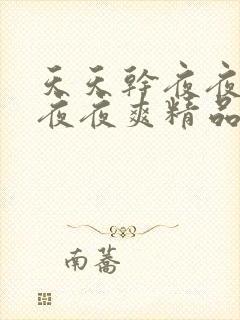 天天幹夜夜
夜夜爽精品
南蕎